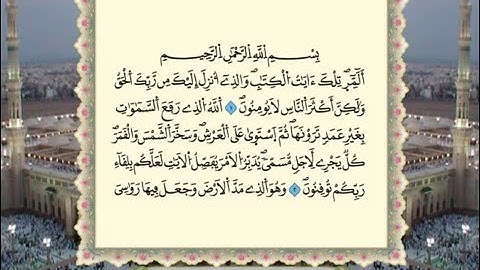 بِسْمِ اللَّهِ الرَّحْمَٰنِ الرَّحِيمِ
أَلَٓمِّٓرۖ تِلْكَ ءَايَٰتُ اُ۬لْكِتَٰبِۖ وَالذِےٓ أُنزِلَ إِلَيْكَ مِن رَّبِّكَ اَ۬لْحَقُّ
وَلَٰكِنَّ أَكْثَرَ اَ۬لنَّاسِ لَا يُومِنُونَۖ ١ اَ۬للَّهُ اُ۬لذِے رَفَعَ اَ۬لسَّمَٰوَٰتِ
بِغَيْرِ عَمَدٖ تَرَوْنَهَاۖ ثُمَّ اَ۪سْتَوَىٰ عَلَى اَ۬لْعَرْشِۖ وَسَخَّرَ اَ۬لشَّمْسَ وَالْقَمَرَۖ
كُلّٞ يَجْرِے لِأَجَلٖ مُّسَمّٗىۖ يُدَبِّرُ اُ۬لَامْرَ يُفَصِّلُ اُ۬لَايَٰتِ لَعَلَّكُم بِلِقَآءِ
رَبِّكُمْ تُوقِنُونَۖ ٢ وَهُوَ اَ۬لذِے مَدَّ اَ۬لَارْضَ وَجَعَلَ فِيهَا رَوَٰسِيَ